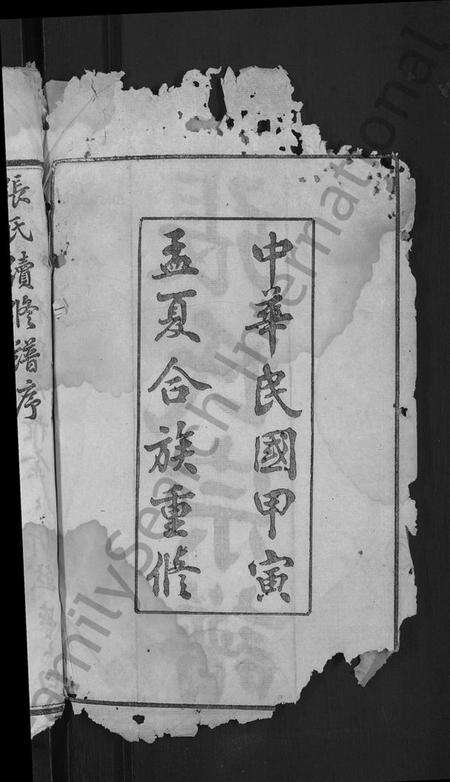 中華民國甲寅
孟夏合族重修
張氏續修譜序
FamilySearch International